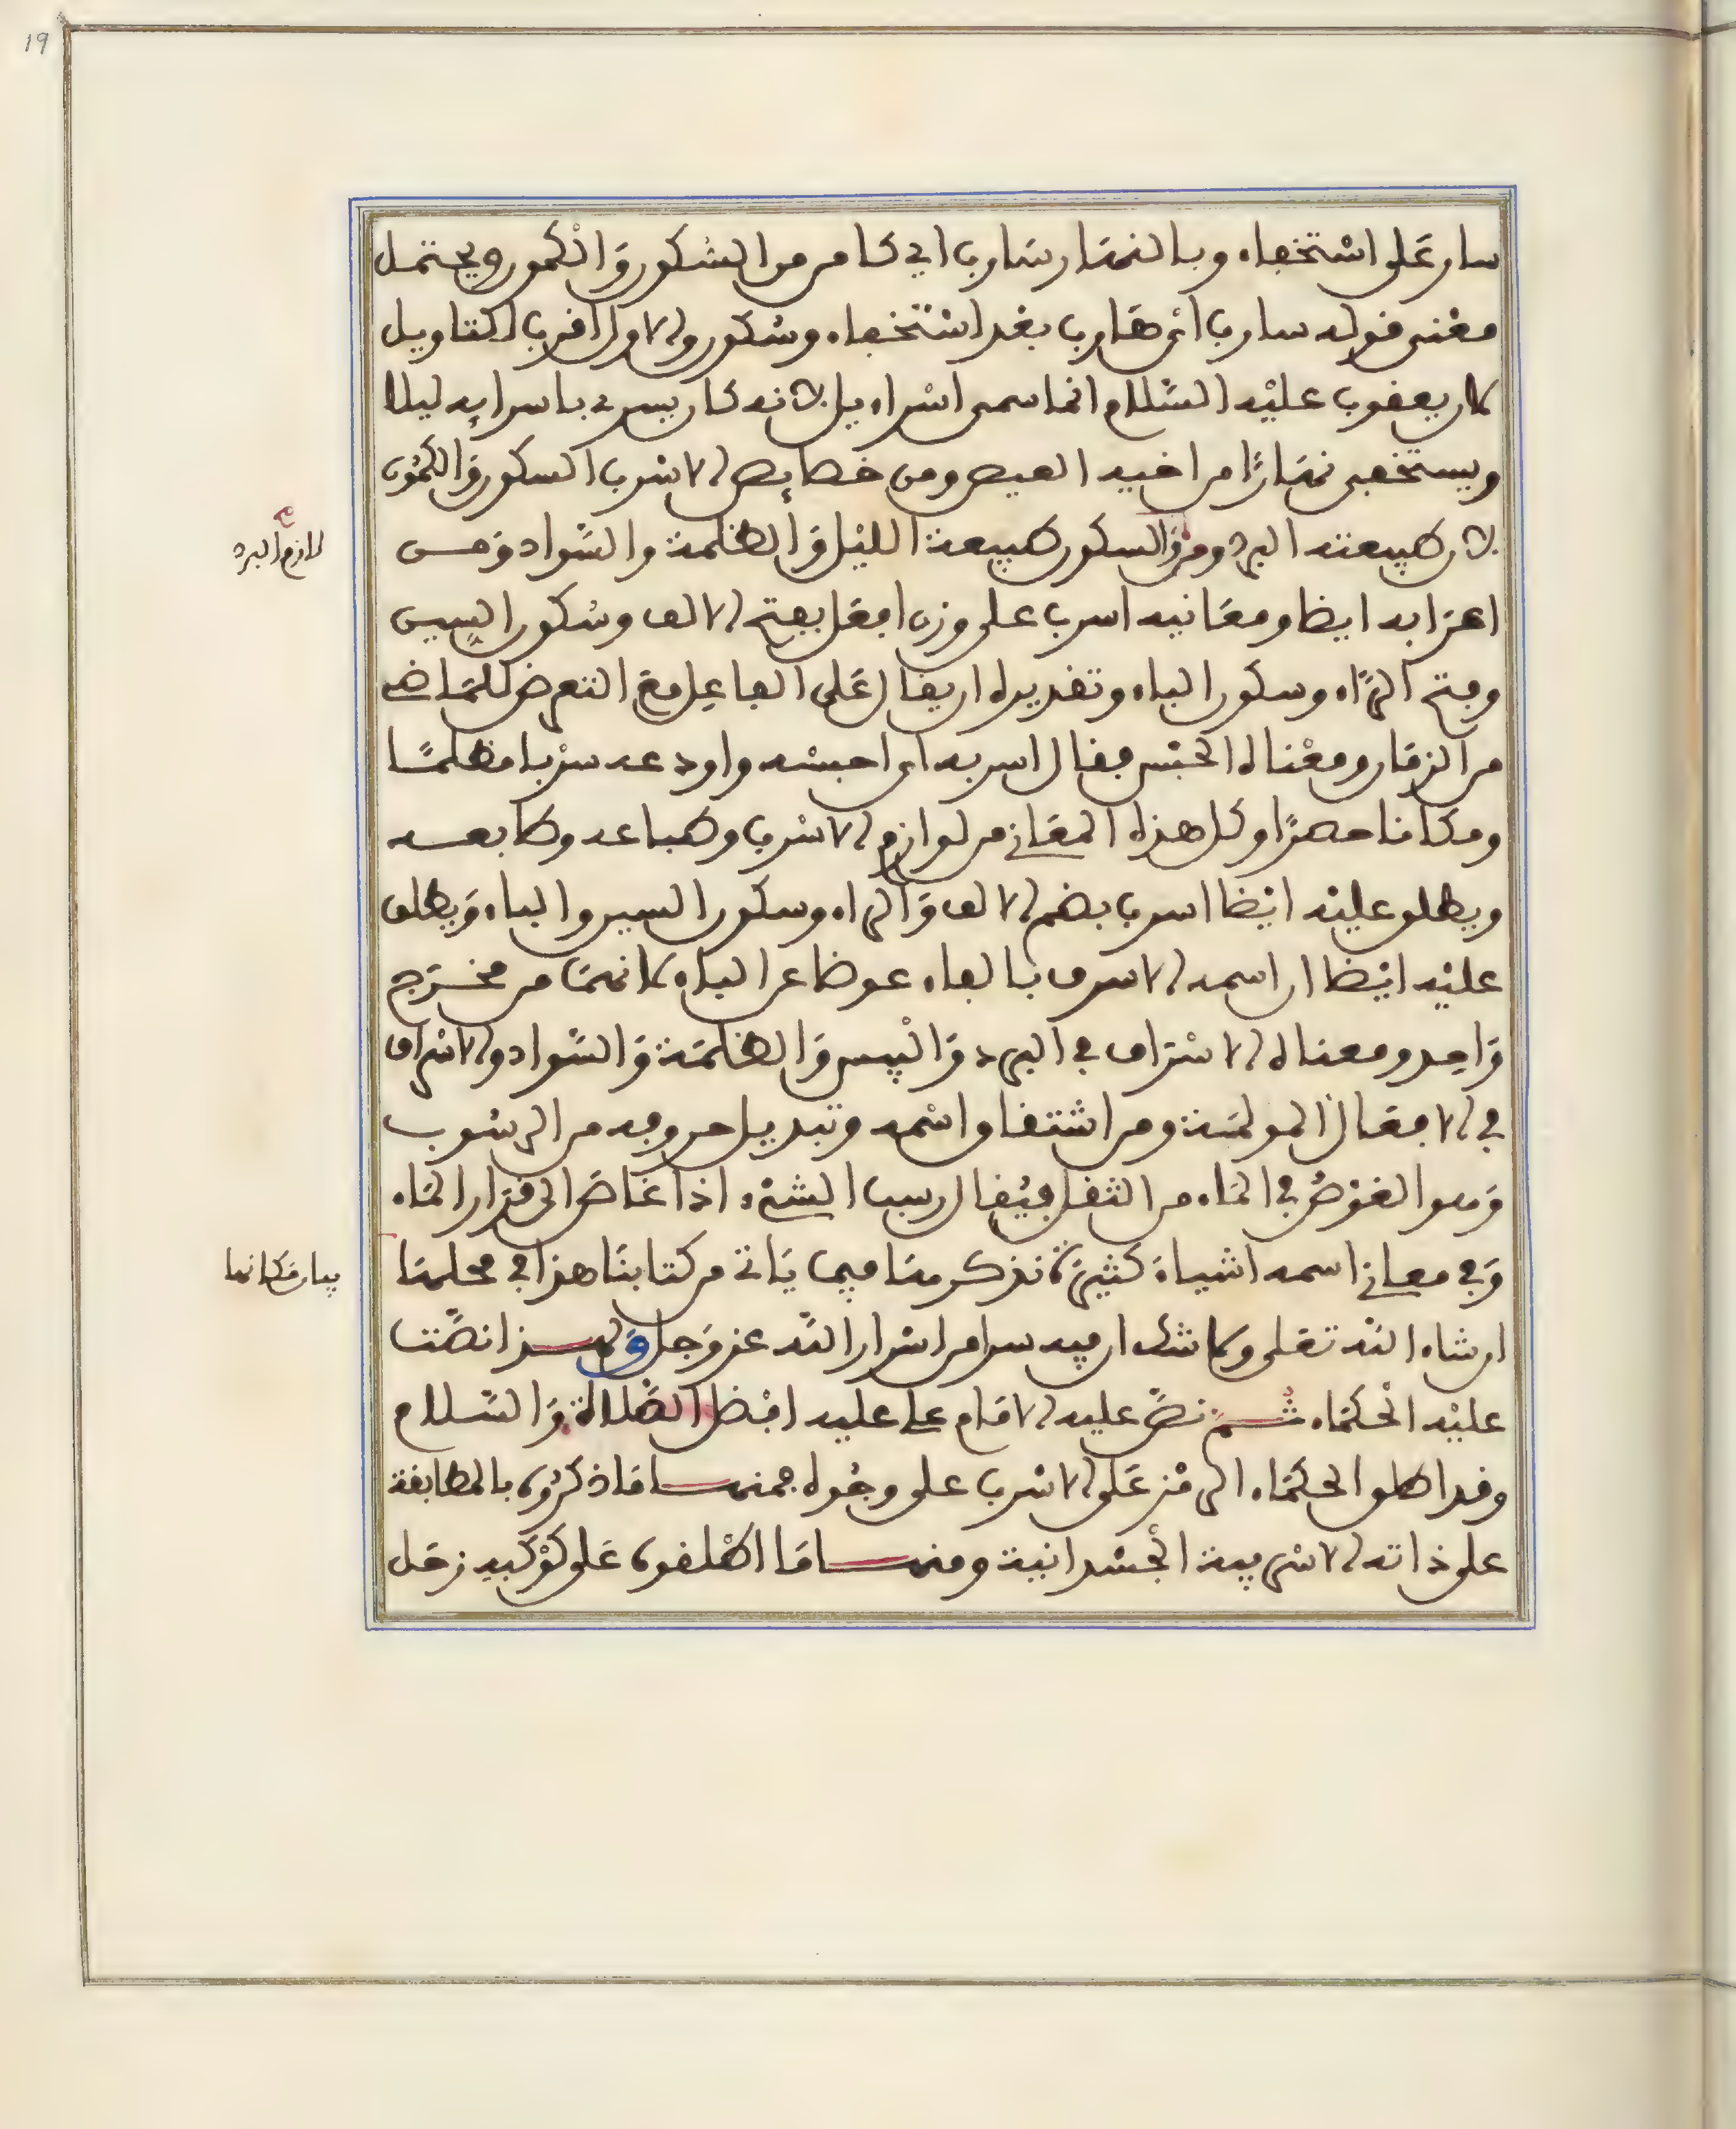 سار على استخفاء وبالنهار سارب اي كامن من السكون والكمون ويحتمل
معنى قوله سارب اي هارب بعد استخفاء وسكون والاول اقرب لاكتاويل
كان يعقوب عليه السلام انما سمي اسراءيل لانه كان يسري باسرايه ليلا
ويستخفي نهارًا من اخيه العيص ومن خصايص الاسرب السكون والكمون
لان طبيعته البرد ومن السكون طبيعة الليل والظلمة والسواد ومن
اعرابه ايضا ومعانيه اسرب على وزن افعل بفتح الالف وسكون السين
وفتح الراء وسكون الباء وتقديره ان يقال على الفاعل مع التعرض للماضي
من الزمان ومعناه الحبس فقال اسربه اي احبسه واودعه سربا مظلمًا
ومكانا حصرًا وكل هذه المعاني من لوازم الاسرب وطباعه وطابعه
ويطلق عليه ايضا اسرب بضم الالف والراء وسكون السين والباء ويطلق
عليه ايضا ان اسمه الاسرف بالفاء عوضا عن الباء لانهما من مخرج
واحد ومعناه الاسراف في البرد واليبس والظلمة والسواد والاسراف
في الافعال المولمة ومن اشتقاق اسمه وتبديل حروفه من الرسوب
وهو الغوص في الماء من الثقل فيقال رسب الشيء اذا غاص الى قرار الماء
وفي معاني اسمه اشياء كثيرة نذكر منها فيما ياتي من كتابنا هذا في محلها
ان شاء الله تعلى ولا شك ان فيه سرا من اسرار الله عز وجل ولهذا نصت
عليه الحكماء ثم نص عليه الامام علي عليه افضل الصلاة والسلام
وقد اطلق الحكماء الرمز على الاسرب على وجوه فمنها ما ذكروه بالمطابقة
على ذاته الاسربية الجسدانية ومنها ما اطلقوه على كوكبه زحل
لازم البرد
بيان مكانها
19